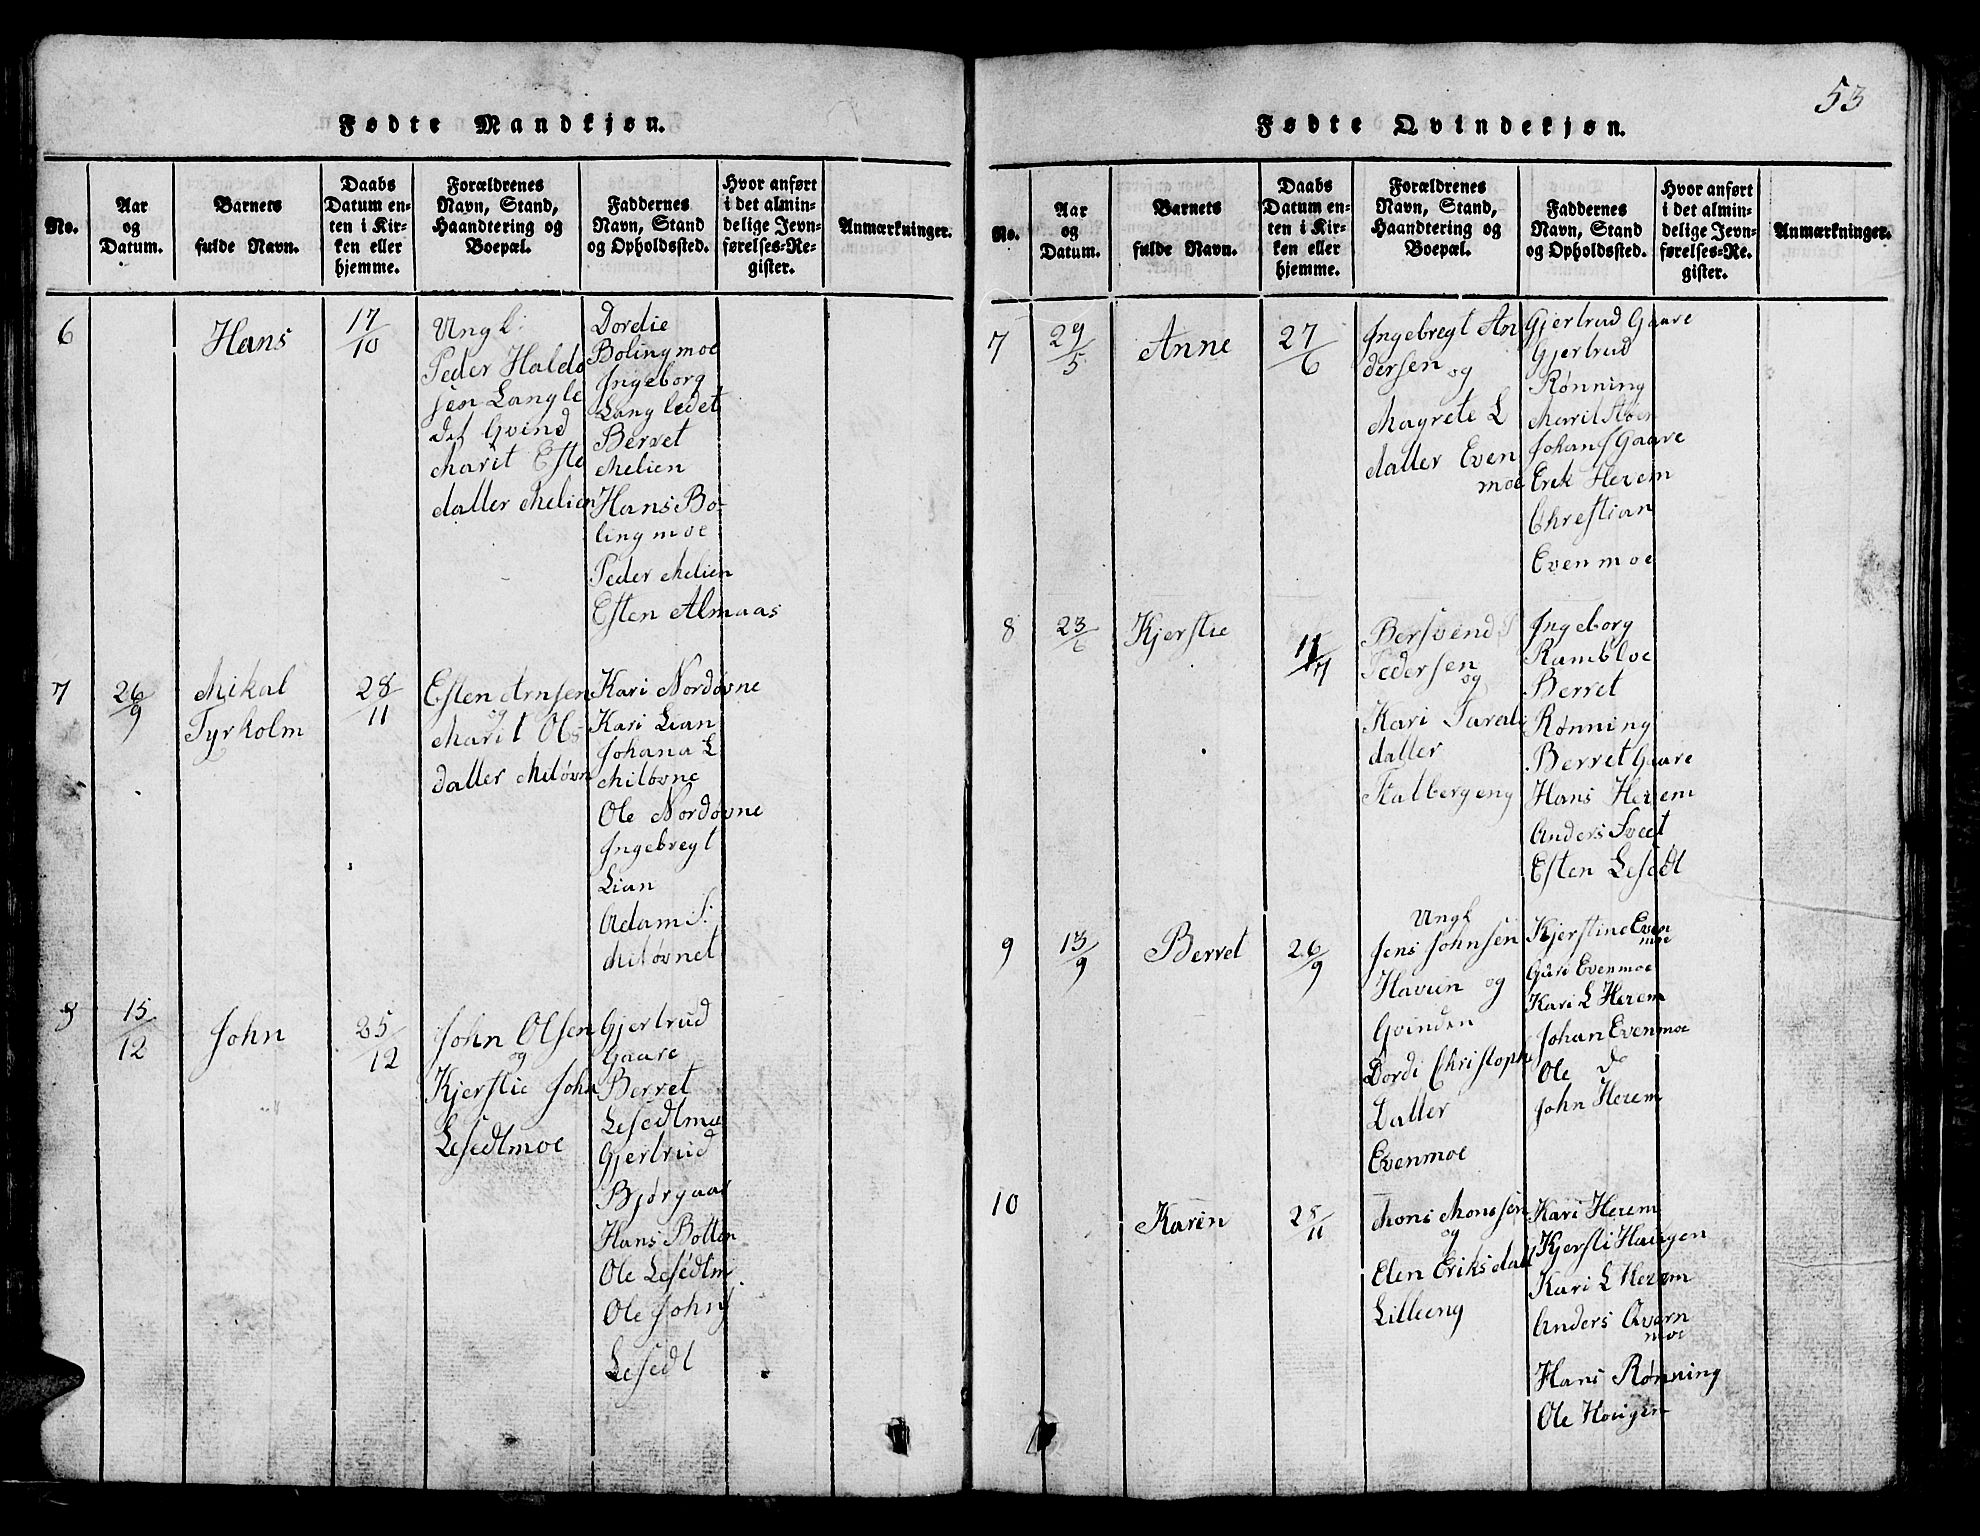 53
Fødte Mandkjøn.
No.
Aar
og
Datum.
Barnets
fulde Navn.
Daabs
Datum en-
ten i Kir-
ken eller
hjemme.
Forældrenes
Navn, Stand,
Haandtering og
Boepæl.
Faddernes
Navn, Stand
og Opholdssted.
Hvor anført
i det almin-
delige Jevn-
førelses-Re-
gister.
Anmærkninger.
6
Hans
17/10
Ungk:
Peder Haldo
sen Langle
det Qvind
Marit Este
datter Melien
Dordie
Bolingmoe
Ingeborg
Langledet
Berret
Melien
Hans Bo-
lingmoe
Peder Melien
Esten Almaas
7
26/9
Mikal
Tyrholm
28/11
Esten Arnsen
og
Marit Ols
datter Miløvn
Kari Nordøvne
Kari Lian
Johana L
Miløvne
Ole Nordøvne
Ingebregt
Lian
Adam S:
Miløvnet
8
15/12
John
25/12
John Olsen
og
Kjerstie John
Lesedtmoe
Gjertrud
Gaare
Berret
Lesedtmoe
Gjertrud
Bjørgaas
Hans Botten
Ole Lesedtm
Ole Johns
Lesedt
Fødte Qvindekjøn.
No.
Aar
og
Datum.
Barnets
fulde Navn.
Daabs
Datum en-
ten i Kir-
ken eller
hjemme.
Forældrenes
Navn, Stand,
Haandtering og
Boepæl.
Faddernes
Navn, Stand
og Opholdssted.
Hvor anført
i det almin-
delige Jevn-
førelses-Re-
gister.
Anmærkninger.
7
29/5
Anne
27/6
Ingebregt An
dersen og
Magrete L
datter Even
moe
Gjertrud Gaare
Gjertrud
Rønning
Marit Støen
Johans Gaare
Erik Herem
Chrestian
Evenmoe
8
23/6
Kjerstie
11/7
Bersvend
Pedersen
og
Kari Tarald
datter
Stalbergeng
Ingeborg
Rambloe
Berret
Rønning
Berret Gaare
Hans Herem
Anders Sveet
Esten Lesedt
9
13/9
Berret
26/9
Ungk
Jens Johnsen
Haven og
Qvinden
Dordi Christoph
Datter
Evenmoe
Kjerstine Even
moe
Guri Evenmoe
Kari L Herem
Johan Evenmoe
Ole do
John Herem
10
Karen
28/11
Mons Monssen
og
Elen Eriksdatt
Lilleeng
Kari Herem
Kjersti Haugen
Kari L Herem
Anders Qværn
moe
Hans Rønning
Ole Hougen